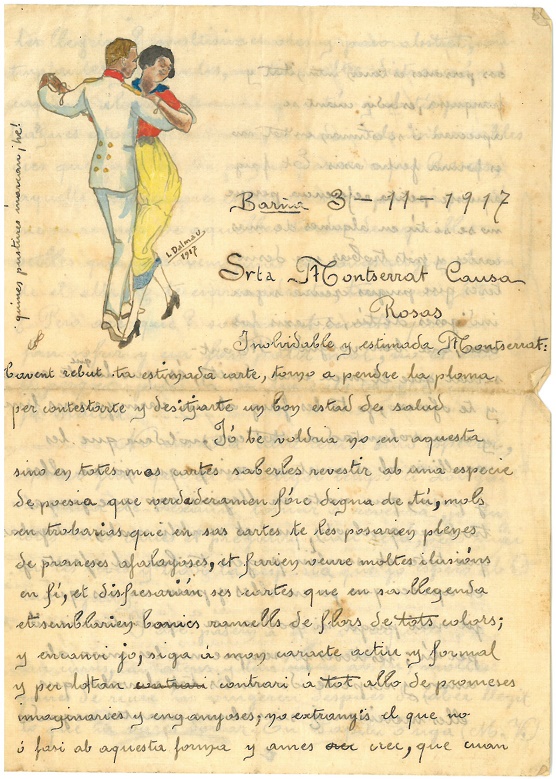 quines pustures marcan, he!
L Dalmau
1917
Barna 3-11-1917
Srta Montserrat Causa
Rosas
Inolvidable y estimada Montserrat:
havent rebut ta estimada carte, torno a pendre la ploma
per contestarte y desitjarte un bon estad de salud
Jó be voldria no en aquesta
sino en totes mas cartes saberles revestir ab una especie
de poesia que verdaderamen fórc digna de tú, mols
en trobarias que en sas cartes te les posarien plenes
de promeses afalagoses, et farien veure móltes ilusións
en fí, et disfresarián ses cartes que en sa llegenda
et semblarien bonics ramells de flors de tots colors;
y encanvi jo, siga á mon caracte actiu y formal
y per lo tan contrari á tot allo de promeses
imaginaries y enganyoses, no extranyis el que no
ó fasi ab aquesta forma y ames crec, que cuan